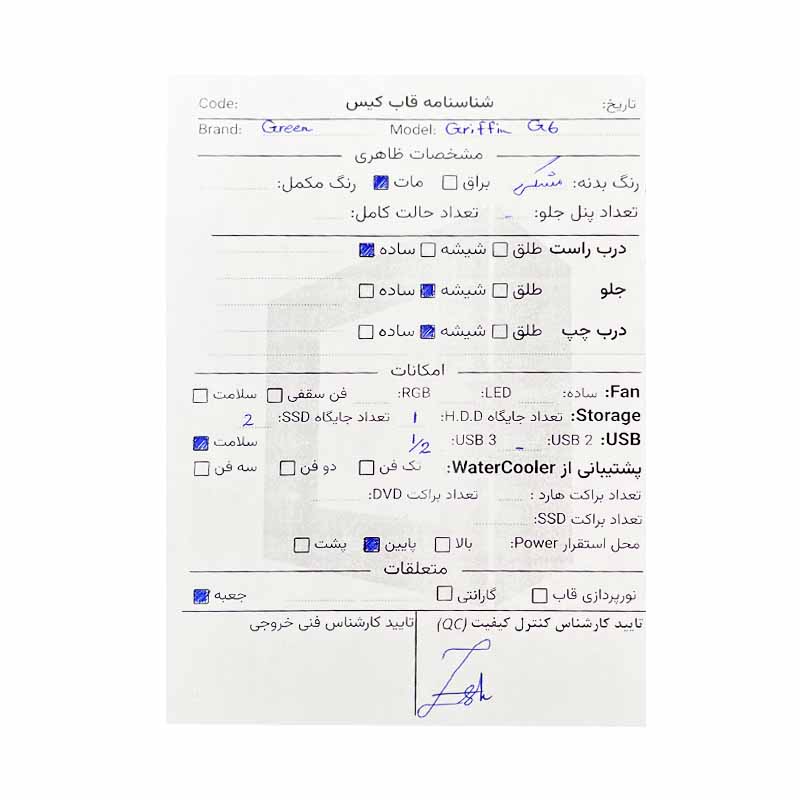 تاریخ: شناسنامه قاب کیس Code:
Brand: Green Model: Griffin G6
مشخصات ظاهری
رنگ بدنه: مشکی براق مات رنگ مکمل:
تعداد پنل جلو: - تعداد حالت کامل:
درب راست طلق شیشه ساده
جلو طلق شیشه ساده
درب چپ طلق شیشه ساده
امکانات
Fan: ساده: LED: RGB: فن سقفی سلامت
Storage: تعداد جایگاه H.D.D: 1 تعداد جایگاه SSD: 2
USB: USB 2: - USB 3: 1/2 سلامت
پشتیبانی از WaterCooler: تک فن دو فن سه فن
تعداد براکت هارد: تعداد براکت DVD:
تعداد براکت SSD:
محل استقرار Power: بالا پایین پشت
متعلقات
نورپردازی قاب گارانتی جعبه
تایید کارشناس کنترل کیفیت (QC) تایید کارشناس فنی خروجی